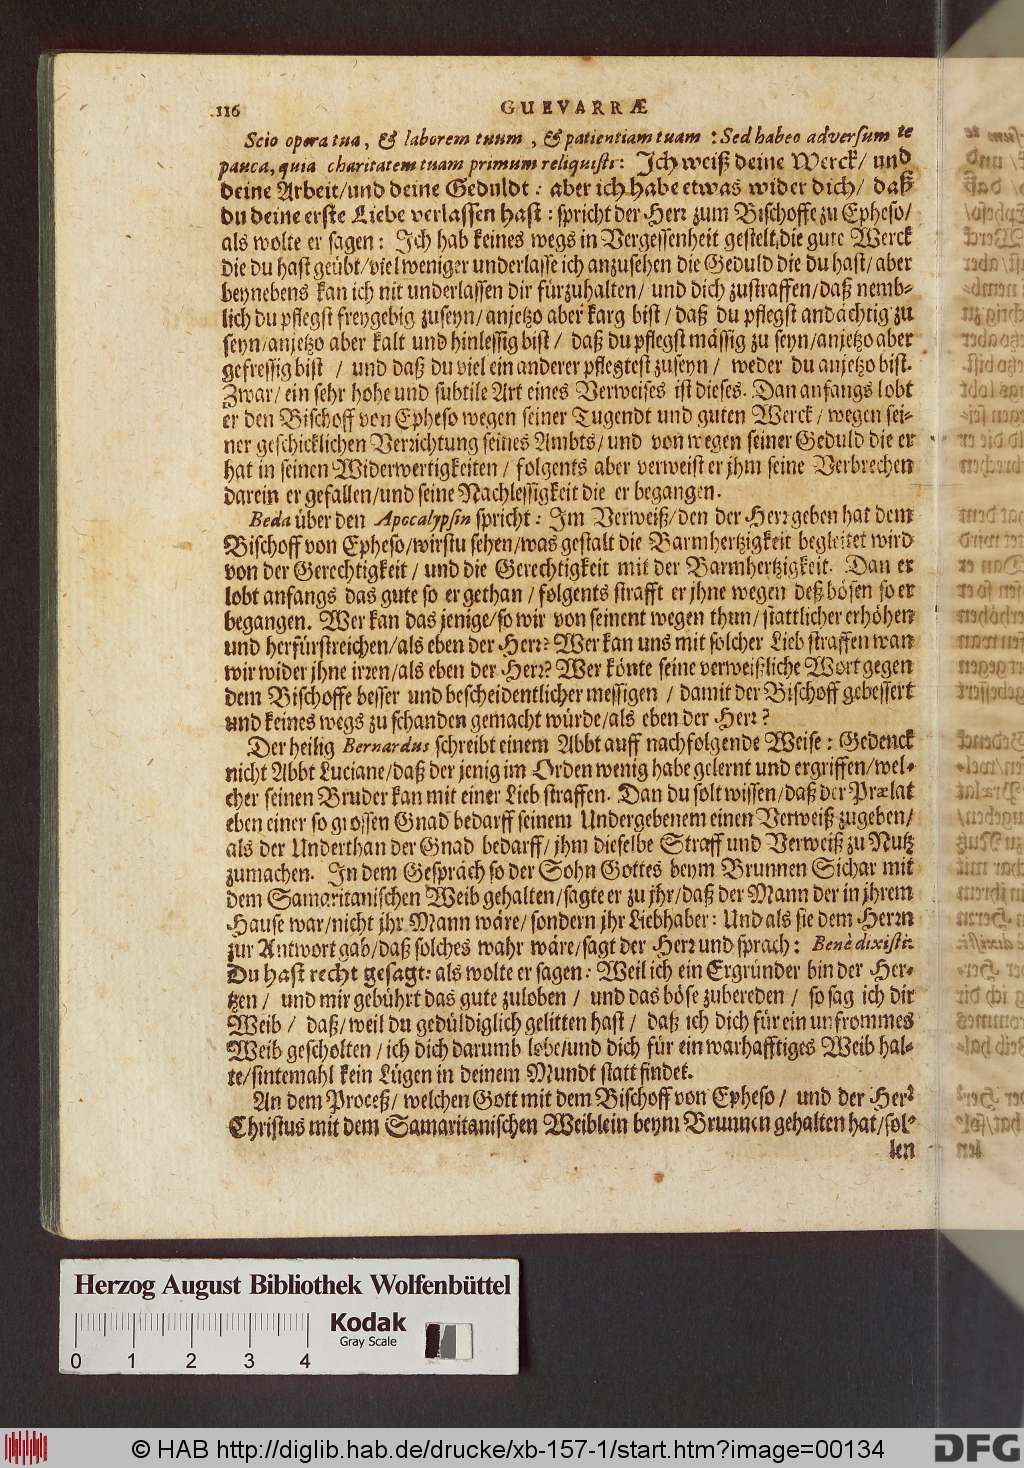 116 GUEVARRÆ
Scio opera tua, & laborem tuum, & patientiam tuam: Sed habeo adversum te
pauca, quia charitatem tuam primum reliquisti: Ich weiß deine Werck/ und
deine Arbeit/und deine Geduldt: aber ich habe etwas wider dich/ daß
du deine erste Liebe verlassen hast: spricht der Herr zum Bischoffe zu Epheso/
als wolte er sagen: Ich hab keines wegs in Vergessenheit gestelt/die gute Werck
die du hast geübt/viel weniger underlasse ich anzusehen die Geduld die du hast/aber
beynebens kan ich nit underlassen dir fürzuhalten/ und dich zustraffen/daß nemb-
lich du pflegst freygebig zuseyn/anjetzo aber karg bist/ daß du pflegst andächtig zu
seyn/anjetzo aber kalt und hinlessig bist/ daß du pflegst mässig zu seyn/anjetzo aber
gefressig bist / und daß du viel ein anderer pflegtest zuseyn/ weder du anjetzo bist.
Zwar/ ein sehr hohe und subtile Art eines Verweises ist dieses. Dan anfangs lobt
er den Bischoff von Epheso wegen seiner Tugendt und guten Werck/ wegen sei-
ner geschicklichen Verrichtung seines Ambts/ und von wegen seiner Geduld die er
hat in seinen Widerwertigkeiten/ folgents aber verweist er jhm seine Verbrechen
darein er gefallen/und seine Nachlessigkeit die er begangen.
Beda über den Apocalypsin spricht: Im Verweiß/den der Herr geben hat dem
Bischoff von Epheso/wirstu sehen/was gestalt die Barmhertzigkeit begleitet wird
von der Gerechtigkeit/ und die Gerechtigkeit mit der Barmhertzigkeit. Dan er
lobt anfangs das gute so er gethan/ folgents strafft er jhne wegen deß bösen so er
begangen. Wer kan das jenige/so wir von seinent wegen thun/stattlicher erhöhen
und herfürstreichen/als eben der Herr? Wer kan uns mit solcher Lieb straffen wan
wir wider jhne irren/als eben der Herr? Wer könte seine verweißliche Wort gegen
dem Bischoffe besser und bescheidentlicher messigen / damit der Bischoff gebessert
und keines wegs zu schanden gemacht würde/als eben der Herr?
Der heilig Bernardus schreibt einem Abbt auff nachfolgende Weise: Gedenck
nicht Abbt Luciane/daß der jenig im Orden wenig habe gelernt und ergriffen/wel-
cher seinen Bruder kan mit einer Lieb straffen. Dan du solt wissen/daß der Prælat
eben einer so grossen Gnad bedarff seinem Undergebenem einen Verweiß zugeben/
als der Underthan der Gnad bedarff/ jhm dieselbe Straff und Verweiß zu Nutz
zumachen. In dem Gespräch so der Sohn Gottes beym Brunnen Sichar mit
dem Samaritanischen Weib gehalten/sagte er zu jhr/daß der Mann der in jhrem
Hause war/nicht jhr Mann wäre/ sondern jhr Liebhaber: Und als sie dem Herrn
zur Antwort gab/daß solches wahr wäre/sagt der Herr und sprach: Benè dixisti:
Du hast recht gesagt: als wolte er sagen: Weil ich ein Ergründer bin der Her-
tzen/ und mir gebührt das gute zuloben/ und das böse zubereden/ so sag ich dir
Weib/ daß/weil du gedüldiglich gelitten hast/ daß ich dich für ein unfrommes
Weib gescholten/ich dich darumb lobe/und dich für ein warhafftiges Weib hal-
te/sintemahl kein Lügen in deinem Mundt statt findet.
An dem Proceß/ welchen Gott mit dem Bischoff von Epheso/ und der Herr
Christus mit dem Samaritanischen Weiblein beym Brunnen gehalten hat/sol-
len
Herzog August Bibliothek Wolfenbüttel
Kodak
Gray Scale
0 1 2 3 4
© HAB http://diglib.hab.de/drucke/xb-157-1/start.htm?image=00134
DFG